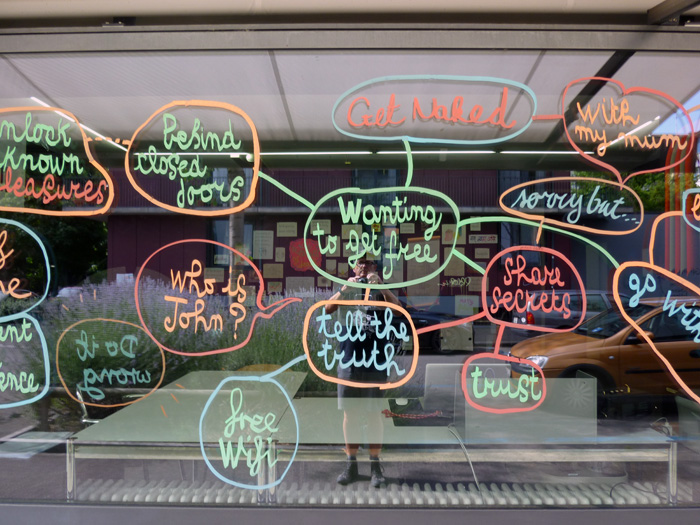 nlock
known
leasures
Behind
closed
doors
Get Naked
With
my mum
sorry but...
Wanting
to get free
Who is
John?
share
secrets
go with
tell the
truth
trust
Do it
wrong
ent
ence
free
Wifi